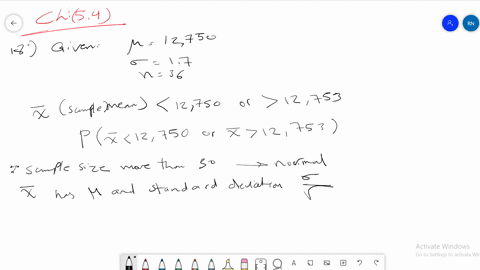 Ch:(5.4)
18:) Given: μ = 12,750
σ = 1.7
n = 36
x̄ (sample mean) < 12,750 or > 12,753
P( x̄ < 12,750 or x̄ > 12,753 )
∵ sample size more than 30 → normal
x̄ has μ and standard deviation σ/√
RN
Activate Windows
Go to Settings to activate Windows.